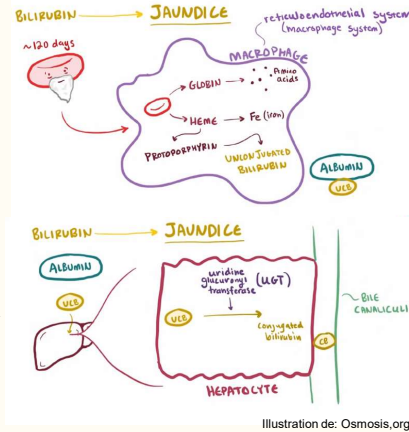 BILIRUBIN → JAUNDICE
reticuloendothelial system
(macrophage system)
~120 days
MACROPHAGE
GLOBIN
Amino
acids
HEME
Fe (iron)
PROTOPORPHYRIN
UNCONJUGATED
BILIRUBIN
ALBUMIN
UCB
BILIRUBIN → JAUNDICE
ALBUMIN
UCB
uridine
glucuronyl
transferase
(UGT)
UCB
conjugated
bilirubin
CB
BILE
CANALICULI
HEPATOCYTE
Illustration de: Osmosis,org